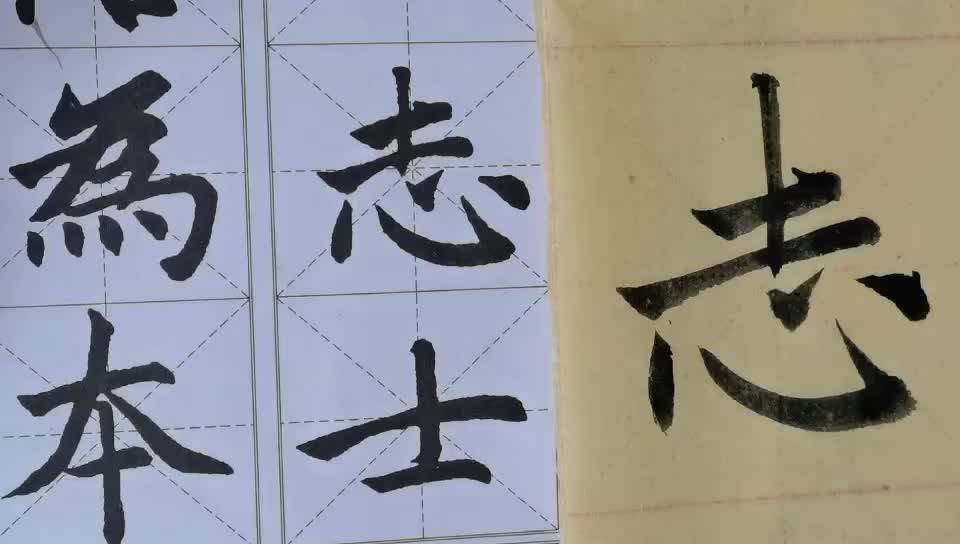 志
志士
為本